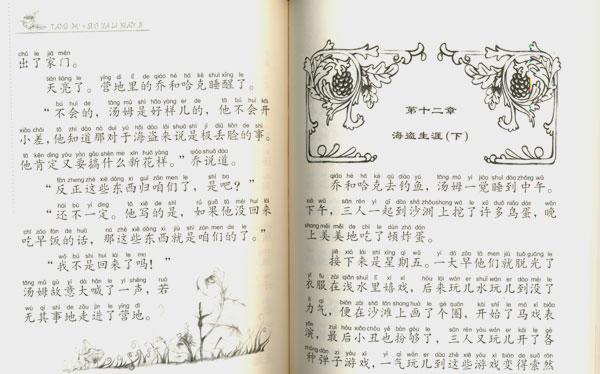 TANG MU · SUO YA LI XIAN JI
chū le jiā mén
出了家门。
tiān liàng le yíng dì lǐ de qiáo hé hā kè shuì xǐng le
天亮了。营地里的乔和哈克睡醒了。
bú huì de tāng mǔ shì hǎo yàng er de tā bú huì kāi
“不会的，汤姆是好样儿的，他不会开
xiǎo chāi tā zhī dào nà duì yú hǎi dào lái shuō shì jí diū liǎn de shì
小差，他知道那对于海盗来说是极丢脸的事。
tā kěn dìng yòu yào gǎo shén me xīn huā yàng qiáo shuō dào
他肯定又要搞什么新花样。”乔说道。
fǎn zhèng zhè xiē dōng xi guī zán men le shì ba
“反正这些东西归咱们了，是吧？”
hái bù yí dìng tā xiě de shì rú guǒ tā méi huí lái
“还不一定。他写的是，如果他没回来
chī zǎo fàn de huà nà zhè xiē dōng xi jiù shì zán men de le
吃早饭的话，那这些东西就是咱们的了。”
wǒ bú shì huí lái le ma
“我不是回来了吗！”
tāng mǔ gù yì dà hǎn le yì shēng ruò
汤姆故意大喊了一声，若
wú qí shì de zǒu jìn le yíng dì
无其事地走进了营地。
第十二章
海盗生涯（下）
qiáo hé hā kè qù diào yú tāng mǔ yí jiào shuì dào zhōng wǔ
乔和哈克去钓鱼，汤姆一觉睡到中午。
xià wǔ sān rén yì qǐ dào shā zhōu shàng wā le xǔ duō niǎo dàn wǎn
下午，三人一起到沙洲上挖了许多鸟蛋，晚
shang měi měi de chī le dùn zhá dàn
上美美地吃了顿炸蛋。
jiē xià lái shì xīng qī wǔ yí dà zǎo tā men jiù tuō guāng le
接下来是星期五。一大早他们就脱光了
yī fu zài qiǎn shuǐ lǐ xī xì hòu lái wán er shuǐ wán er dào méi le
衣服在浅水里嬉戏，后来玩儿水玩儿到没了
lì qi biàn zài shā tān shang huà le gè quān kāi shǐ le mǎ xì biǎo
力气，便在沙滩上画了个圈，开始了马戏表
yǎn zuì hòu xiǎo chǒu yě bàn gòu le sān rén yòu wán er kāi le gè
演，最后小丑也扮够了，三人又玩儿开了各
zhǒng dàn zi yóu xì yí qì wán er dào zhè xiē yóu xì biàn de suǒ rán
种弹子游戏，一气玩儿到这些游戏变得索然